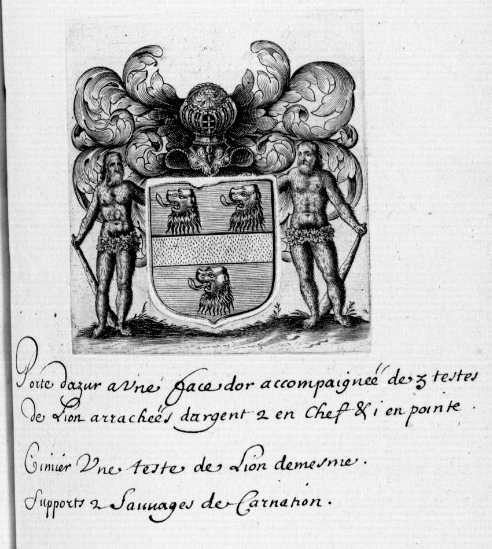 Porte dazur a Vne face dor accompaigneé de 3 testes
de Lion arracheés dargent 2 en Chef & i en pointe.
Cimier Vne teste de Lion demesme.
Supports 2 Sauuages de Carnation.